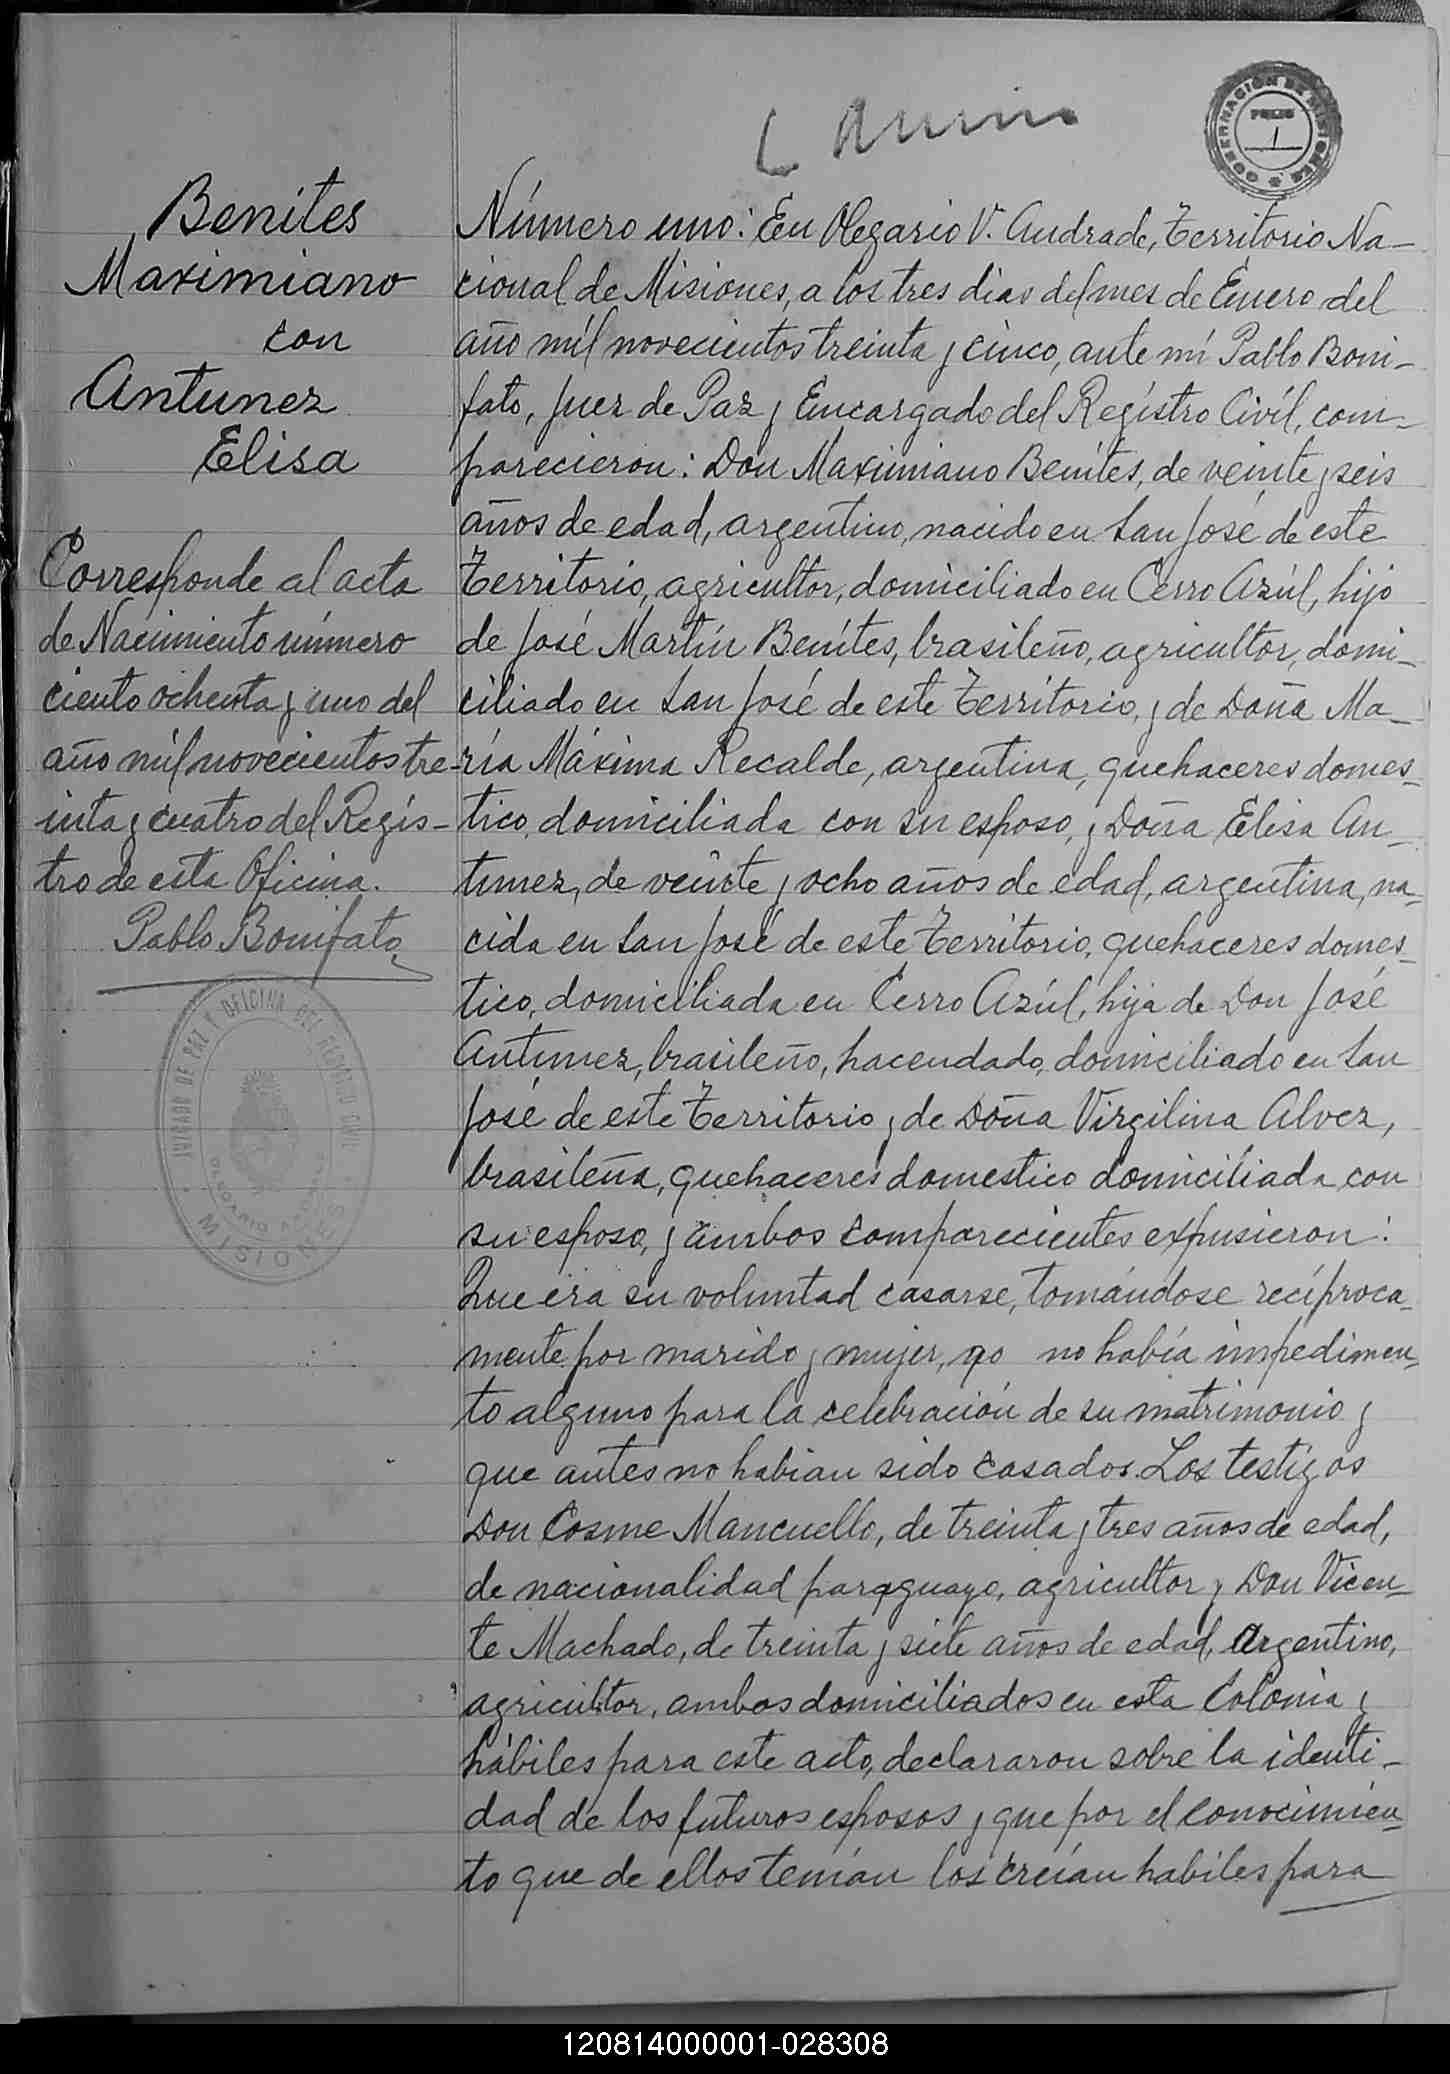 GOBERNACIÓN DE MISIONES
FOLIO
1
Benites
Maximiano
con
Antunez
Elisa
Corresponde al acta
de Nacimiento número
ciento ochenta y uno del
año mil novecientos tre-
inta y cuatro del Regis-
tro de esta Oficina.
Pablo Bonifato
JUZGADO DE PAZ Y OFICINA DEL REGISTRO CIVIL
MISIONES
Número uno: En Olegario V. Andrade, Territorio Na-
cional de Misiones, a los tres dias del mes de Enero del
año mil novecientos treinta y cinco, ante mí Pablo Boni-
fato, Juez de Paz y Encargado del Registro Civíl, com-
parecieron: Don Maximiano Benítes, de veinte y seis
años de edad, argentino, nacido en San José de este
Territorio, agricultor, domiciliado en Cerro Azúl, hijo
de José Martín Benítes, brasileño, agricultor, domi-
ciliado en San José de este Territorio, y de Doña Ma-
ría Máxima Recalde, argentina, quehaceres domes-
tico, domiciliada con su esposo, y Doña Elisa An-
tunez, de veinte y ocho años de edad, argentina, na-
cida en San José de este Territorio, quehaceres domes-
tico, domiciliada en Cerro Azúl, hija de Don José
Antunez, brasileño, hacendado, domiciliado en San
José de este Territorio y de Doña Virgilina Alvez,
brasileña, quehaceres domestico domiciliada con
su esposo, y ambos comparecientes expusieron:
Que era su voluntad casarse, tomándose recíproca-
mente por marido y mujer, qo no había impedimen-
to alguno para la celebración de su matrimonio y
que antes no habian sido casados. Los testigos
Don Cosme Mancuello, de treinta y tres años de edad,
de nacionalidad paraguayo, agricultor y Don Vicen-
te Machado, de treinta y siete años de edad, Argentino,
agricultor, ambos domiciliados en esta Colonia y
hábiles para este acto, declararon sobre la identi-
dad de los futuros esposos y que por el conocimien-
to que de ellos tenían los creían habiles para
120814000001-028308